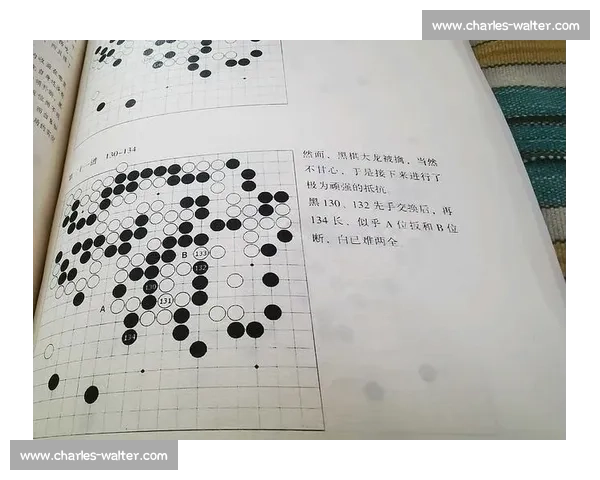 www.charles-walter.com
一谱 130-134
然而，黑棋大龙被擒，当然
不甘心，于是接下来进行了
极为顽强的抵抗
黑 130、132 先手交换后，再
134 长，似乎 A 位扳和 B 位
断，白已难两全
B
133
132
130
131
A
134
www.charles-walter.com